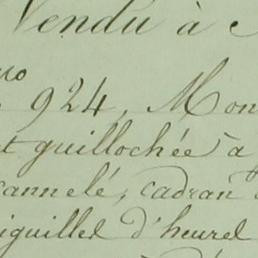 Vendu à
no 924, Mon
t guillochée à
cannelé, cadran
iguilles d'heures